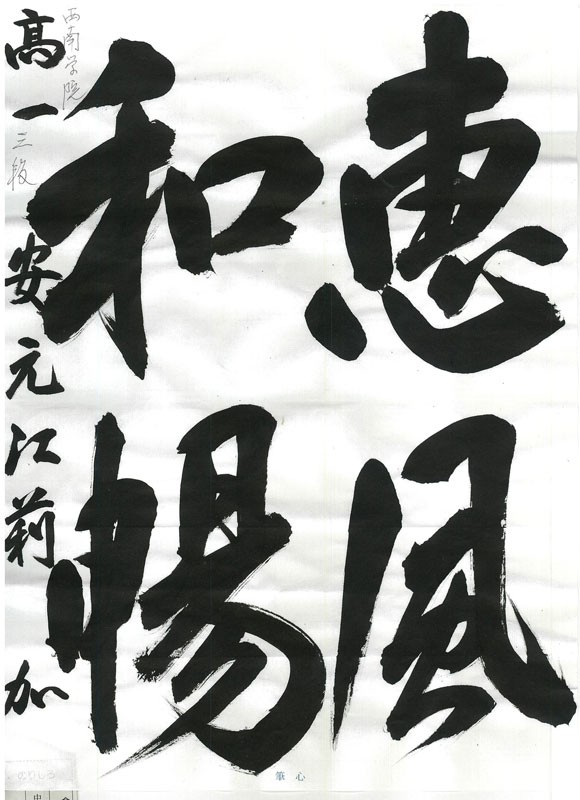 恵風
和暢
西南学院
高一三段 安元江莉加
筆心
のりしろ